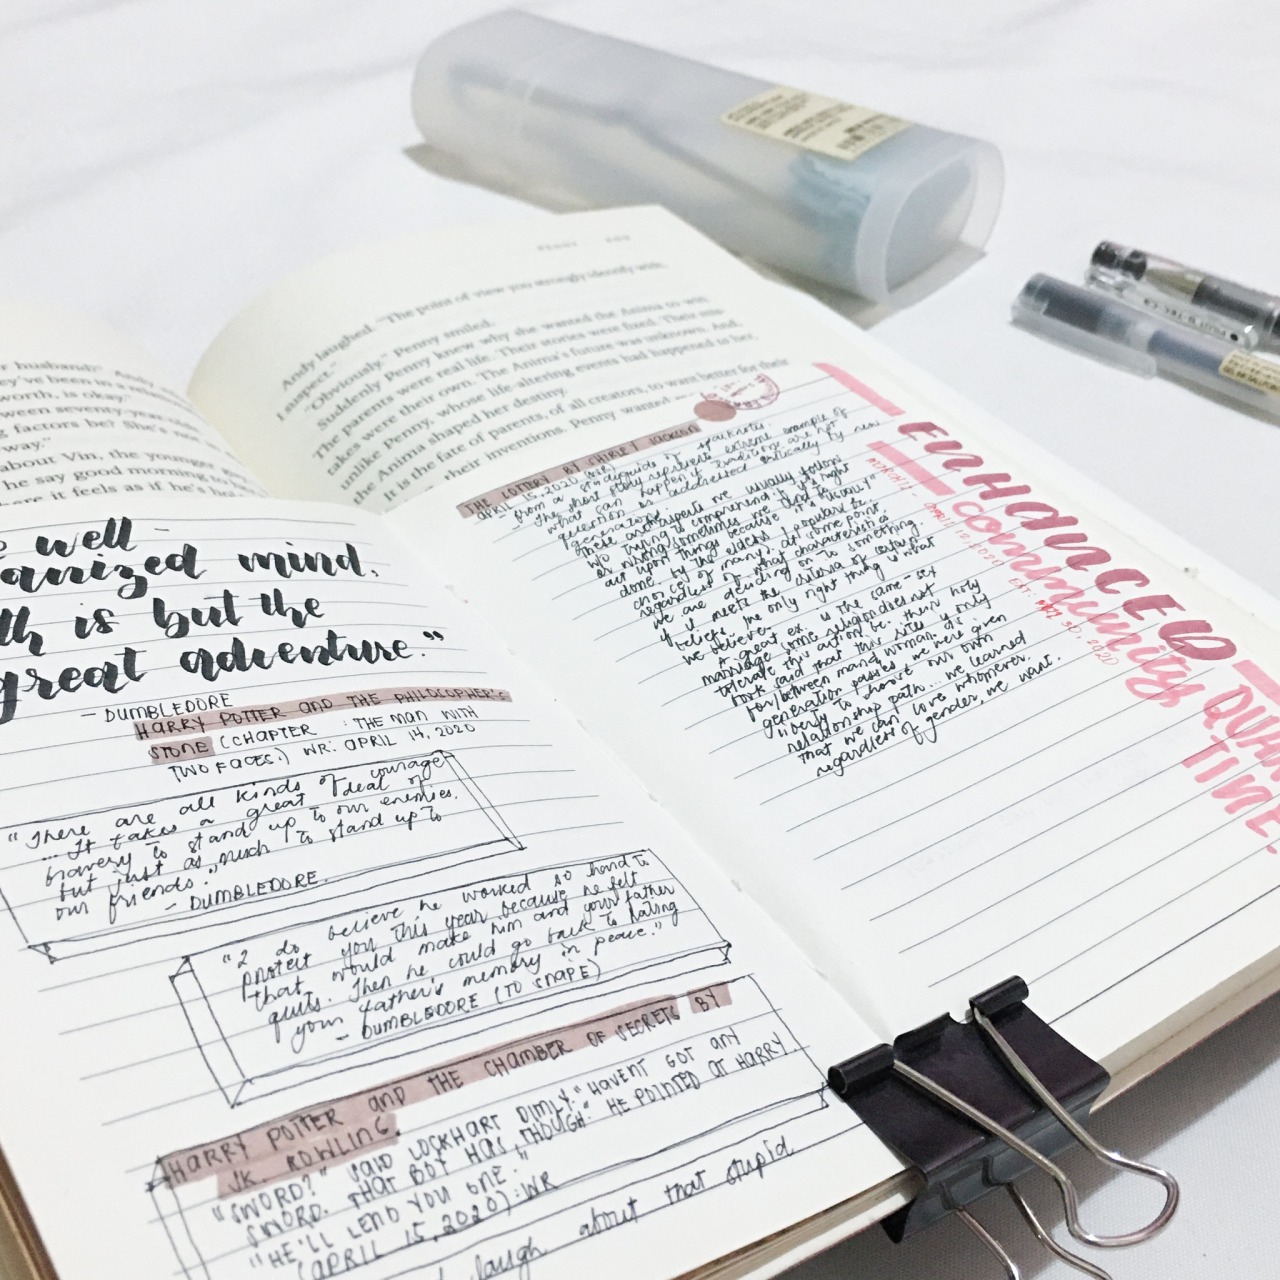 Andy laughed. "The point of view you strongly identify with,
I suspect."
"Obviously," Penny smiled.
Suddenly Penny knew why she wanted the Anima to win
The parents were real life. Their stories were fixed. Their mis
takes were their own. The Anima's future was unknown. And,
unlike Penny, whose life-altering events had happened to her,
the Anima shaped her destiny.
It is the fate of parents, of all creators, to want better for their
their inventions. Penny wanted
husband?" Andy
they've been in a
worth, is okay."
between seventy-year-olde
g factors be? She's not
way."
about Vin, the younger
he say good morning to
it feels as if he's
well -
anized mind,
th is but the
great adventure."
- DUMBLEDORE
HARRY POTTER AND THE PHILOCOPHER'S
STONE (CHAPTER : THE MAN WITH
TWO FACES.) WR: APRIL 14, 2020
"There are all kinds of courage
... It takes a great deal of
bravery to stand up to our enemies,
but just as much to stand up to
our friends."
- DUMBLEDORE.
"I do believe he worked so hard to
protect you this year because he felt
that would make him and your father
quits. Then he could go back to hating
your father's memory in peace."
- DUMBLEDORE (TO SNAPE)
HARRY POTTER and THE CHAMBER OF SECRETS BY
JK. ROWLING.
"SWORD?" SAID LOCKHART DIMLY. "HAVENT GOT ANY
SWORD. THAT BOY HAS, THOUGH." HE POINTED AT HARRY.
"HE'LL LEND YOU ONE."
(APRIL 15, 2020): WR
laugh about that stupid
THE LOTTERY BY SHIRLEY JACKSON
APRIL 15, 2020 (WR)
- From a standpoint of
- The short story represents extreme example of
what can happen if traditions are not
question or addressed critically by new
generations.
There are aspects we usually follow
w/o trying to comprehend if its right
or wrong, sometimes we find "RITUALLY"
act upon things because it is
done by the elders / popular to
choices of many; at some point
regardless of what characteristic
we are deciding on to something
if it meets the criteria of
beliefs, the only right thing is what
we believe.
A great ex. is the same-sex
marriage, some religion does not
tolerate this action bc. their holy
book said that this sites is only
for/between man and woman. As
generation passes we were given
liberty to have our own
relationship path... we learned
that we can love whomever,
regardless of gender, we want.
ENHANCED
COMMUNITY
QUAN
TINE.
MARCH 12 - APRIL 12, 2020 EXT: APRIL 30, 2020